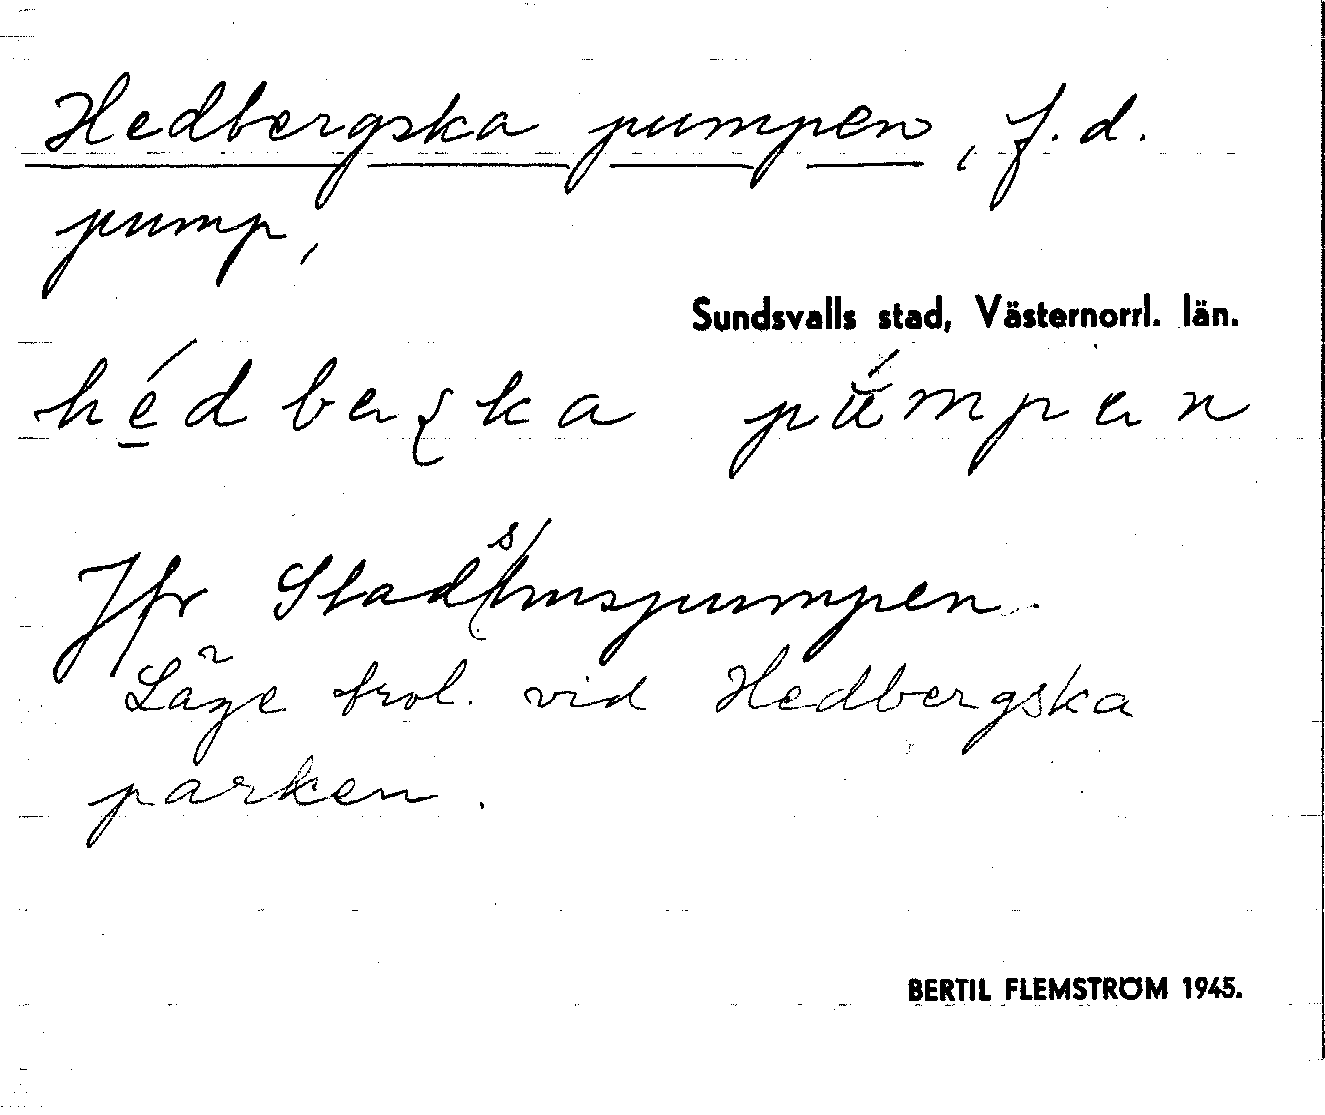 Hedbergska pumpen, f.d.
pump,
Sundsvalls stad, Västernorrl. län.
pumpen
Jfr Stadshuspumpen.
Läge trol. vid Hedbergska
parken.
BERTIL FLEMSTRÖM 1945.